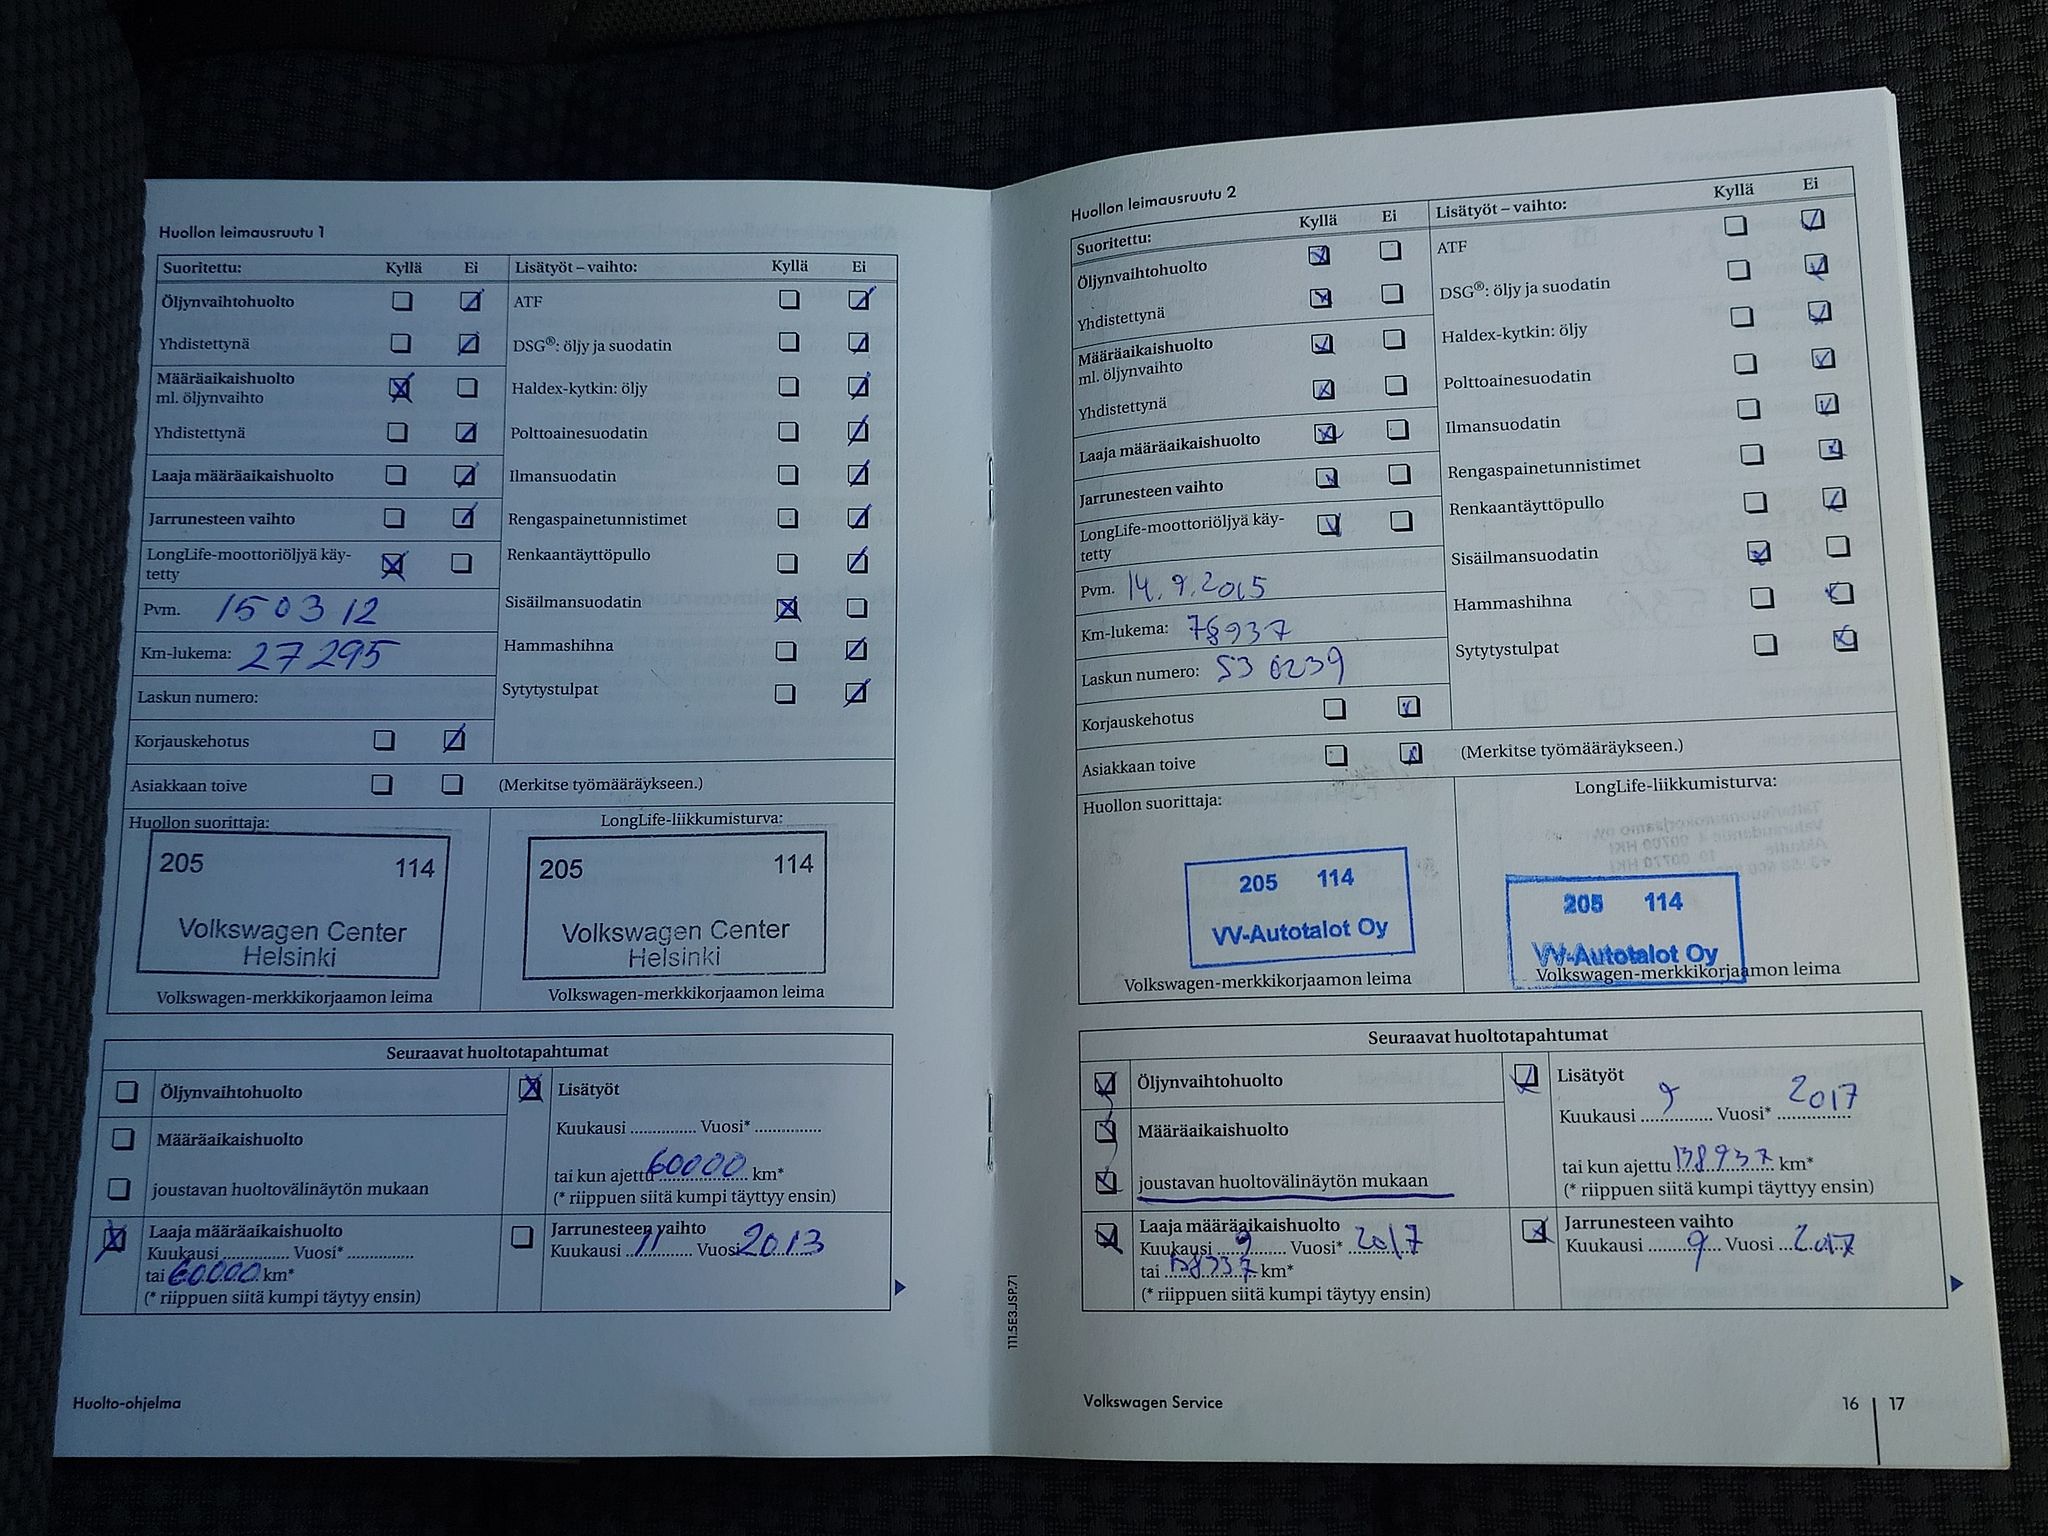 Huollon leimausruutu 1
Suoritettu: Kyllä Ei
Öljynvaihtohuolto
Yhdistettynä
Määräaikaishuolto
ml. öljynvaihto
Yhdistettynä
Laaja määräaikaishuolto
Jarrunesteen vaihto
LongLife-moottoriöljyä käy-
tetty
Pvm. 15 03 12
Km-lukema: 27 295
Laskun numero:
Korjauskehotus
Asiakkaan toive (Merkitse työmääräykseen.)
Lisätyöt – vaihto: Kyllä Ei
ATF
DSG®: öljy ja suodatin
Haldex-kytkin: öljy
Polttoainesuodatin
Ilmansuodatin
Rengaspainetunnistimet
Renkaantäyttöpullo
Sisäilmansuodatin
Hammashihna
Sytytystulpat
Huollon suorittaja:
205 114
Volkswagen Center
Helsinki
Volkswagen-merkkikorjaamon leima
LongLife-liikkumisturva:
205 114
Volkswagen Center
Helsinki
Volkswagen-merkkikorjaamon leima
Seuraavat huoltotapahtumat
Öljynvaihtohuolto
Määräaikaishuolto
joustavan huoltovälinäytön mukaan
Laaja määräaikaishuolto
Kuukausi ............... Vuosi* ...............
tai 60000 km*
(* riippuen siitä kumpi täytyy ensin)
Lisätyöt
Kuukausi ............... Vuosi* ...............
tai kun ajettu 60000 km*
(* riippuen siitä kumpi täyttyy ensin)
Jarrunesteen vaihto
Kuukausi 11 Vuosi 2013
Huolto-ohjelma
111.5E3.JSP.71
Huollon leimausruutu 2
Suoritettu: Kyllä Ei
Öljynvaihtohuolto
Yhdistettynä
Määräaikaishuolto
ml. öljynvaihto
Yhdistettynä
Laaja määräaikaishuolto
Jarrunesteen vaihto
LongLife-moottoriöljyä käy-
tetty
Pvm. 14.9.2015
Km-lukema: 78937
Laskun numero: 530239
Korjauskehotus
Asiakkaan toive (Merkitse työmääräykseen.)
Lisätyöt – vaihto: Kyllä Ei
ATF
DSG®: öljy ja suodatin
Haldex-kytkin: öljy
Polttoainesuodatin
Ilmansuodatin
Rengaspainetunnistimet
Renkaantäyttöpullo
Sisäilmansuodatin
Hammashihna
Sytytystulpat
Huollon suorittaja:
205 114
VV-Autotalot Oy
Volkswagen-merkkikorjaamon leima
LongLife-liikkumisturva:
205 114
VV-Autotalot Oy
Volkswagen-merkkikorjaamon leima
Seuraavat huoltotapahtumat
Öljynvaihtohuolto
Määräaikaishuolto
joustavan huoltovälinäytön mukaan
Laaja määräaikaishuolto
Kuukausi 9 Vuosi* 2017
tai 138937 km*
(* riippuen siitä kumpi täytyy ensin)
Lisätyöt
Kuukausi 9 Vuosi* 2017
tai kun ajettu 138937 km*
(* riippuen siitä kumpi täyttyy ensin)
Jarrunesteen vaihto
Kuukausi 9 Vuosi 2017
Volkswagen Service
16 17